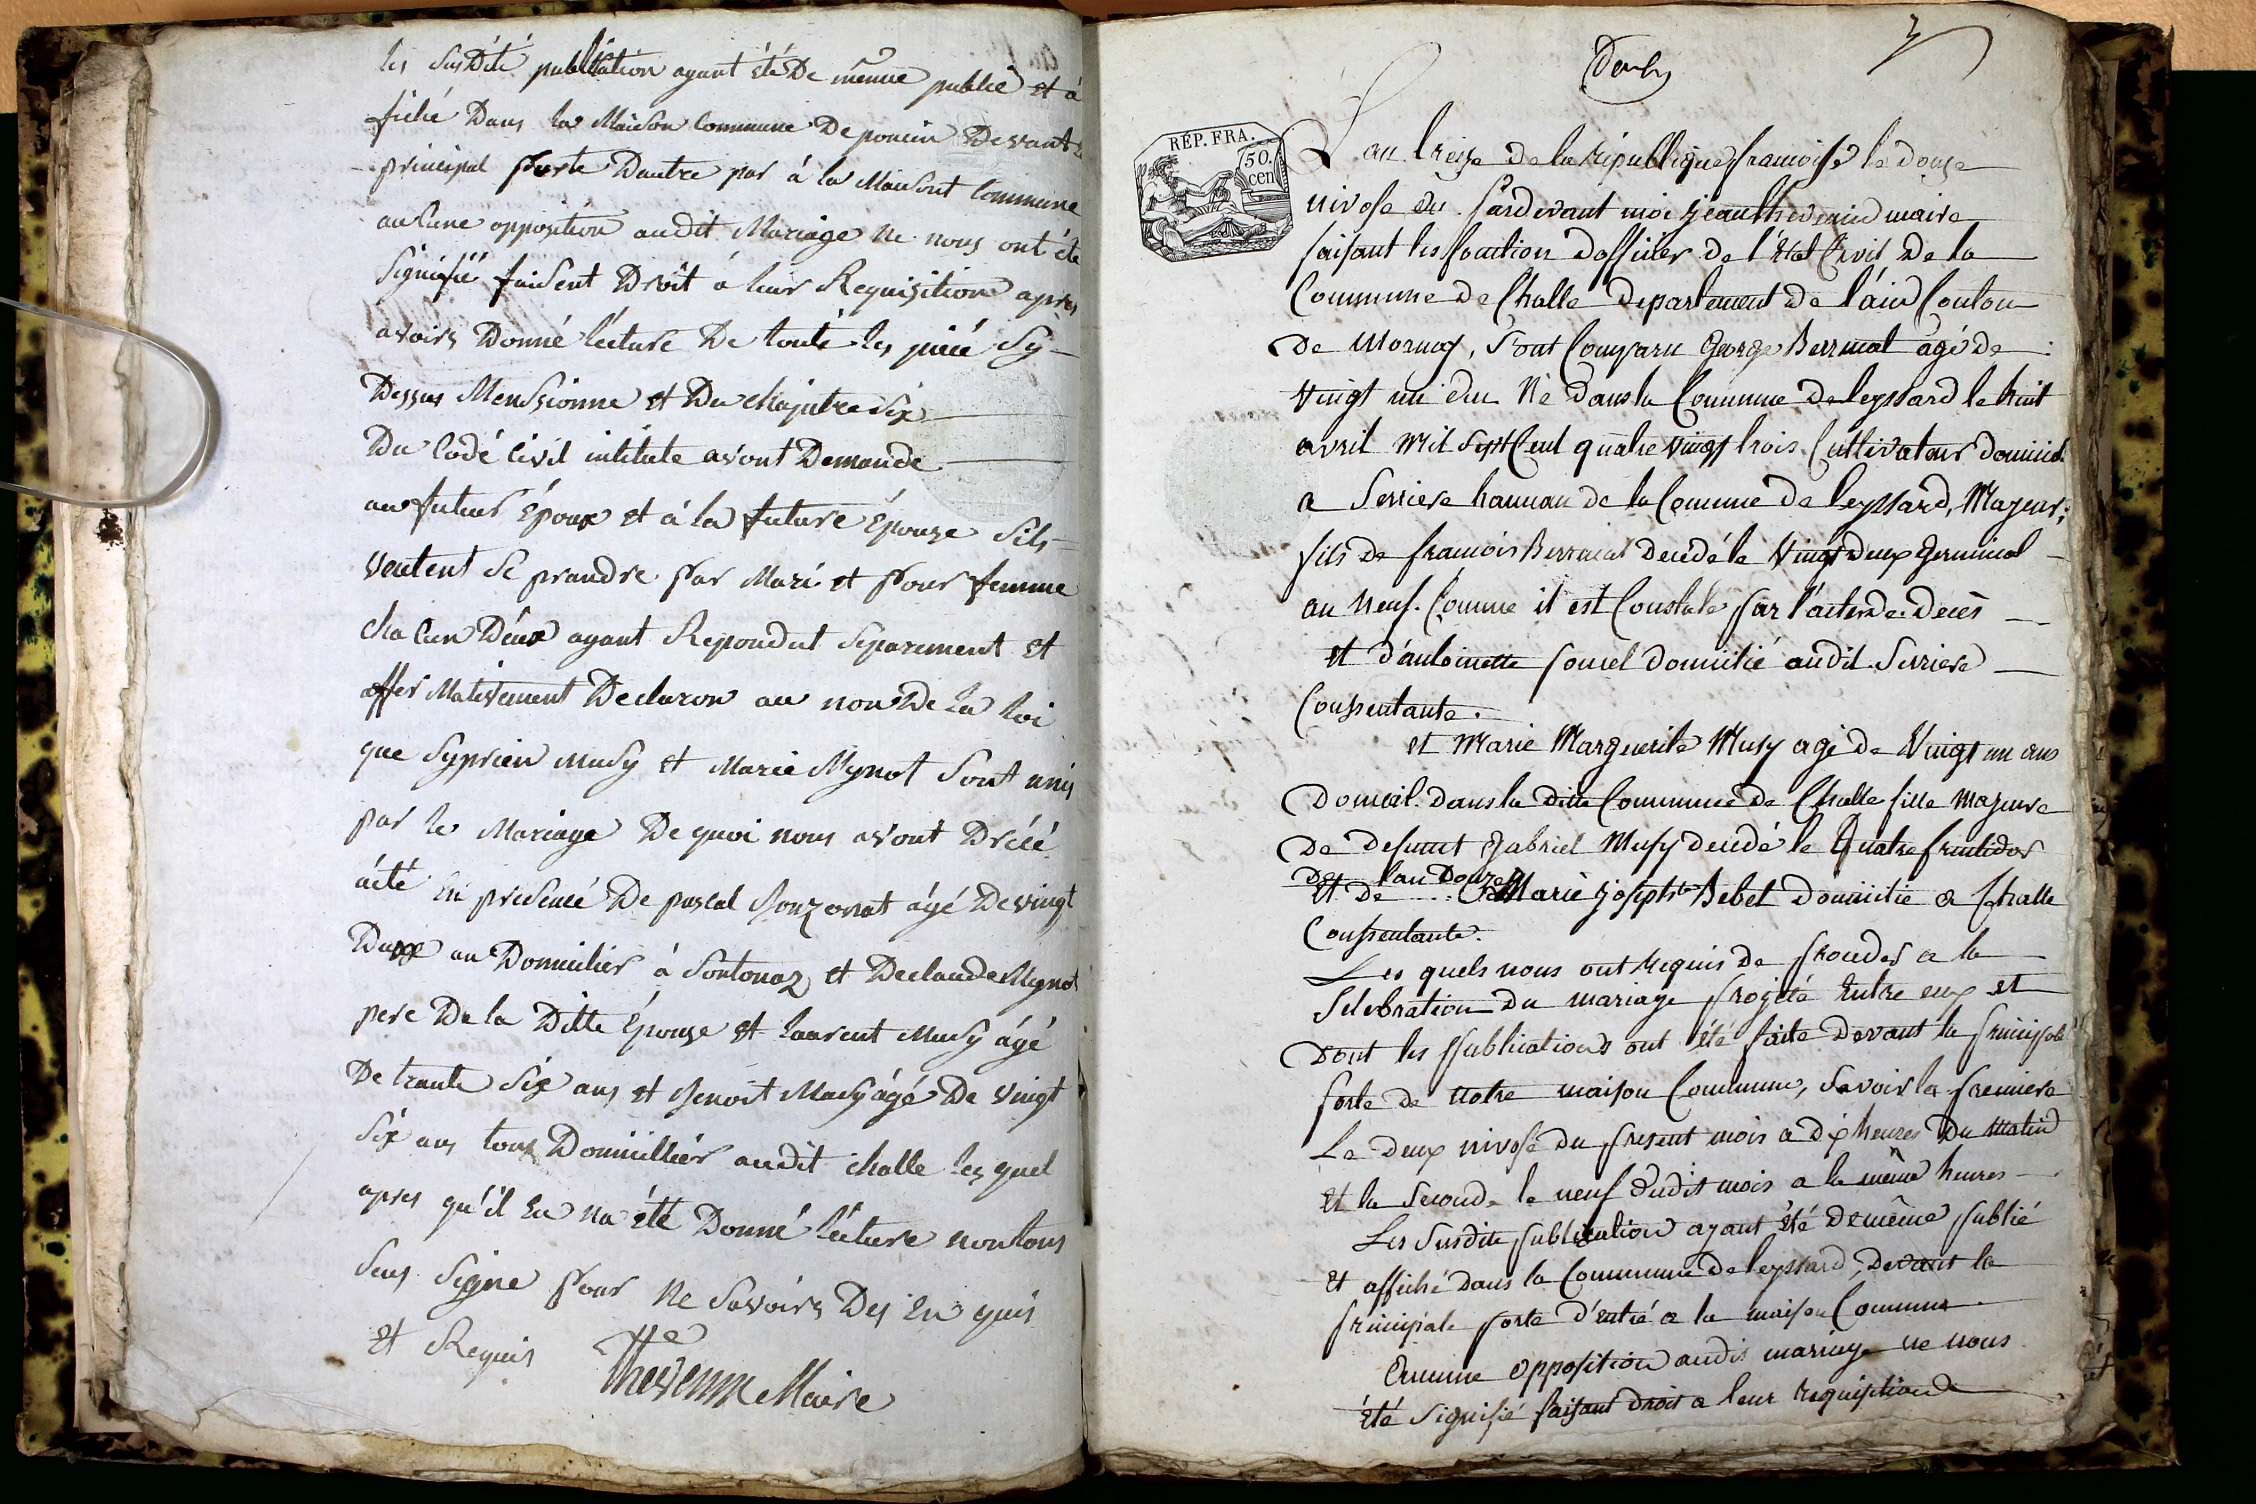 les susdité publication ayant été De même publié et a
fiché Dans la Maison commune De poncin Devant la
principal porte Dantre par á la Maisont commune
aucune opposition audit Mariage Ne nous ont été
signifié faisent Droit á leur Requisition apres
avoirs Donné lécture De touté les piéce sy
Dessus Menssionne et Du chapitre six
Du Codé Civil intitule avont Demande
au futur Epoux et á la future Epouze sils
veutent se prandre par Mari et pour femme
chacun Déux ayant Repondut separement et
affer Mativement Declaron au non De La Loi
que Syprien Musy et Marie Mynot sont unis
par le Mariage De quoi nous avont Drécé
ácté En presencé De pascal Bonzonat ágé De vingt
Duxe an Domicilier á Sontonaz et De claude Mynot
pere De la Ditte Epouze et Laurent Musy ágé
De trante six ans et Benoit Musy ágé De vingt
six ans tous Domicillier audit challe les quel
apres qu'il En na été Donné lécture non tous
seus signe pour Ne savoirs Des En quis
et Requis
The
Thevenin Maire
3
REP. FRA.
50. cen
L'an treize de la république francoise le douze
nivose du. Pardevant moi jean thevenin maire
faisant les fonction dofficier de l'état Civil De la
Commune de Challe departement de l'ain Conton
de Mornay, Sont Comparu George Berrnat agé de
Vingt un an Né dans la Commune de leyssard le huit
avril mil sept Cent quatre vingt trois Cultivateur domicil.
a Serriere hamau de la Comune de leyssard, Majeur,
fils de francois Bernat decédé le vingt deux Germinal
an Neuf. Comme il est Constate par l'acte de deces
et d'antoinette poncel domicilié audit Serriere
Consentante.
et Marie Marguerite Musy agé de Vingt un ans
Domicil. dans la ditte Commune de Challe fille majeure
de defunct Gabriel Musy decédé le Quatre fructidor
de l'an Douze
Et de Marie josephte Bebet domicilie a Challe
Consentante.
Les quels nous ont requis de proceder a la
Selebration du mariage projeté entre eux et
dont les publications ont été faite devant la principale
porte de notre maison Commune, Savoir la premiere
Le deux nivose du present mois a dix heures du matin
et la Seconde le neuf dudit mois a la même heures
Les Susdite publication ayant été de même publié
Et affiché dans la Commune de leyssard, devant la
principale porte d'entré a la maison Commune
aucune opposition audit mariage ne nous
été Signifié faisant droit a leur requisition